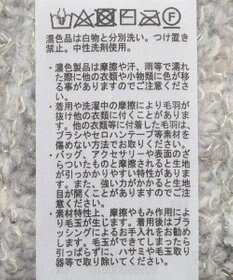 濃色品は白物と分別洗い。つけ置き
禁止。中性洗剤使用。
・濃色製品は摩擦や汗、雨等で濡れ
た際に他の衣類や小物類に色が移
る事がありますのでお気を付けく
ださい。
・着用や洗濯中の摩擦により毛羽が
抜けて他の衣類に付くことがありま
す。他の衣類等に付着した毛羽は、
ブラシやセロハンテープ等素材を
傷めない方法でお取りください。
・バッグ、アクセサリーや表面のざ
らついたものと摩擦されると生地
が引っかかりやすい特性がありま
す。また、強い力がかかると生地
目が開きますのでお気を付けくだ
さい。
・素材特性上、摩擦やもみ作用によ
り毛玉が生じます。着用後はブラ
ッシングによるお手入れをお勧め
します。毛玉ができてしまったら
引っぱらずに、ハサミや毛玉取り
器等で取り除いてください。